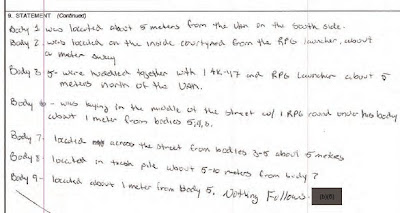 9. STATEMENT (Continued)
Body 1 - was located about 5 meters from the Van on the South side.
Body 2 - was located on the inside courtyard from the RPG launcher, about
a meter away
Body 3-5- were huddled together with 1 AK-47 and RPG Launcher about 5
meters north of the VAN.
Body 6 - was laying in the middle of the street w/ 1 RPG round under his body
about 1 meter from bodies 5,4,3.
Body 7- located across the street from bodies 3-5 about 5 meters
Body 8- located in trash pile about 5-10 meters from body 7
Body 9- located about 1 meter from Body 5. Nothing Follows